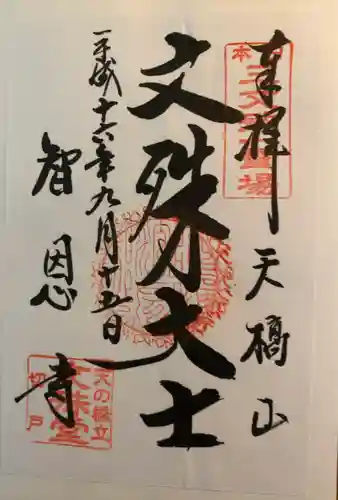 奉拝
天橋山
本
三文殊霊場
文殊大士
平成十六年九月十五日
智恩寺
天の橋立
文殊堂
切戸